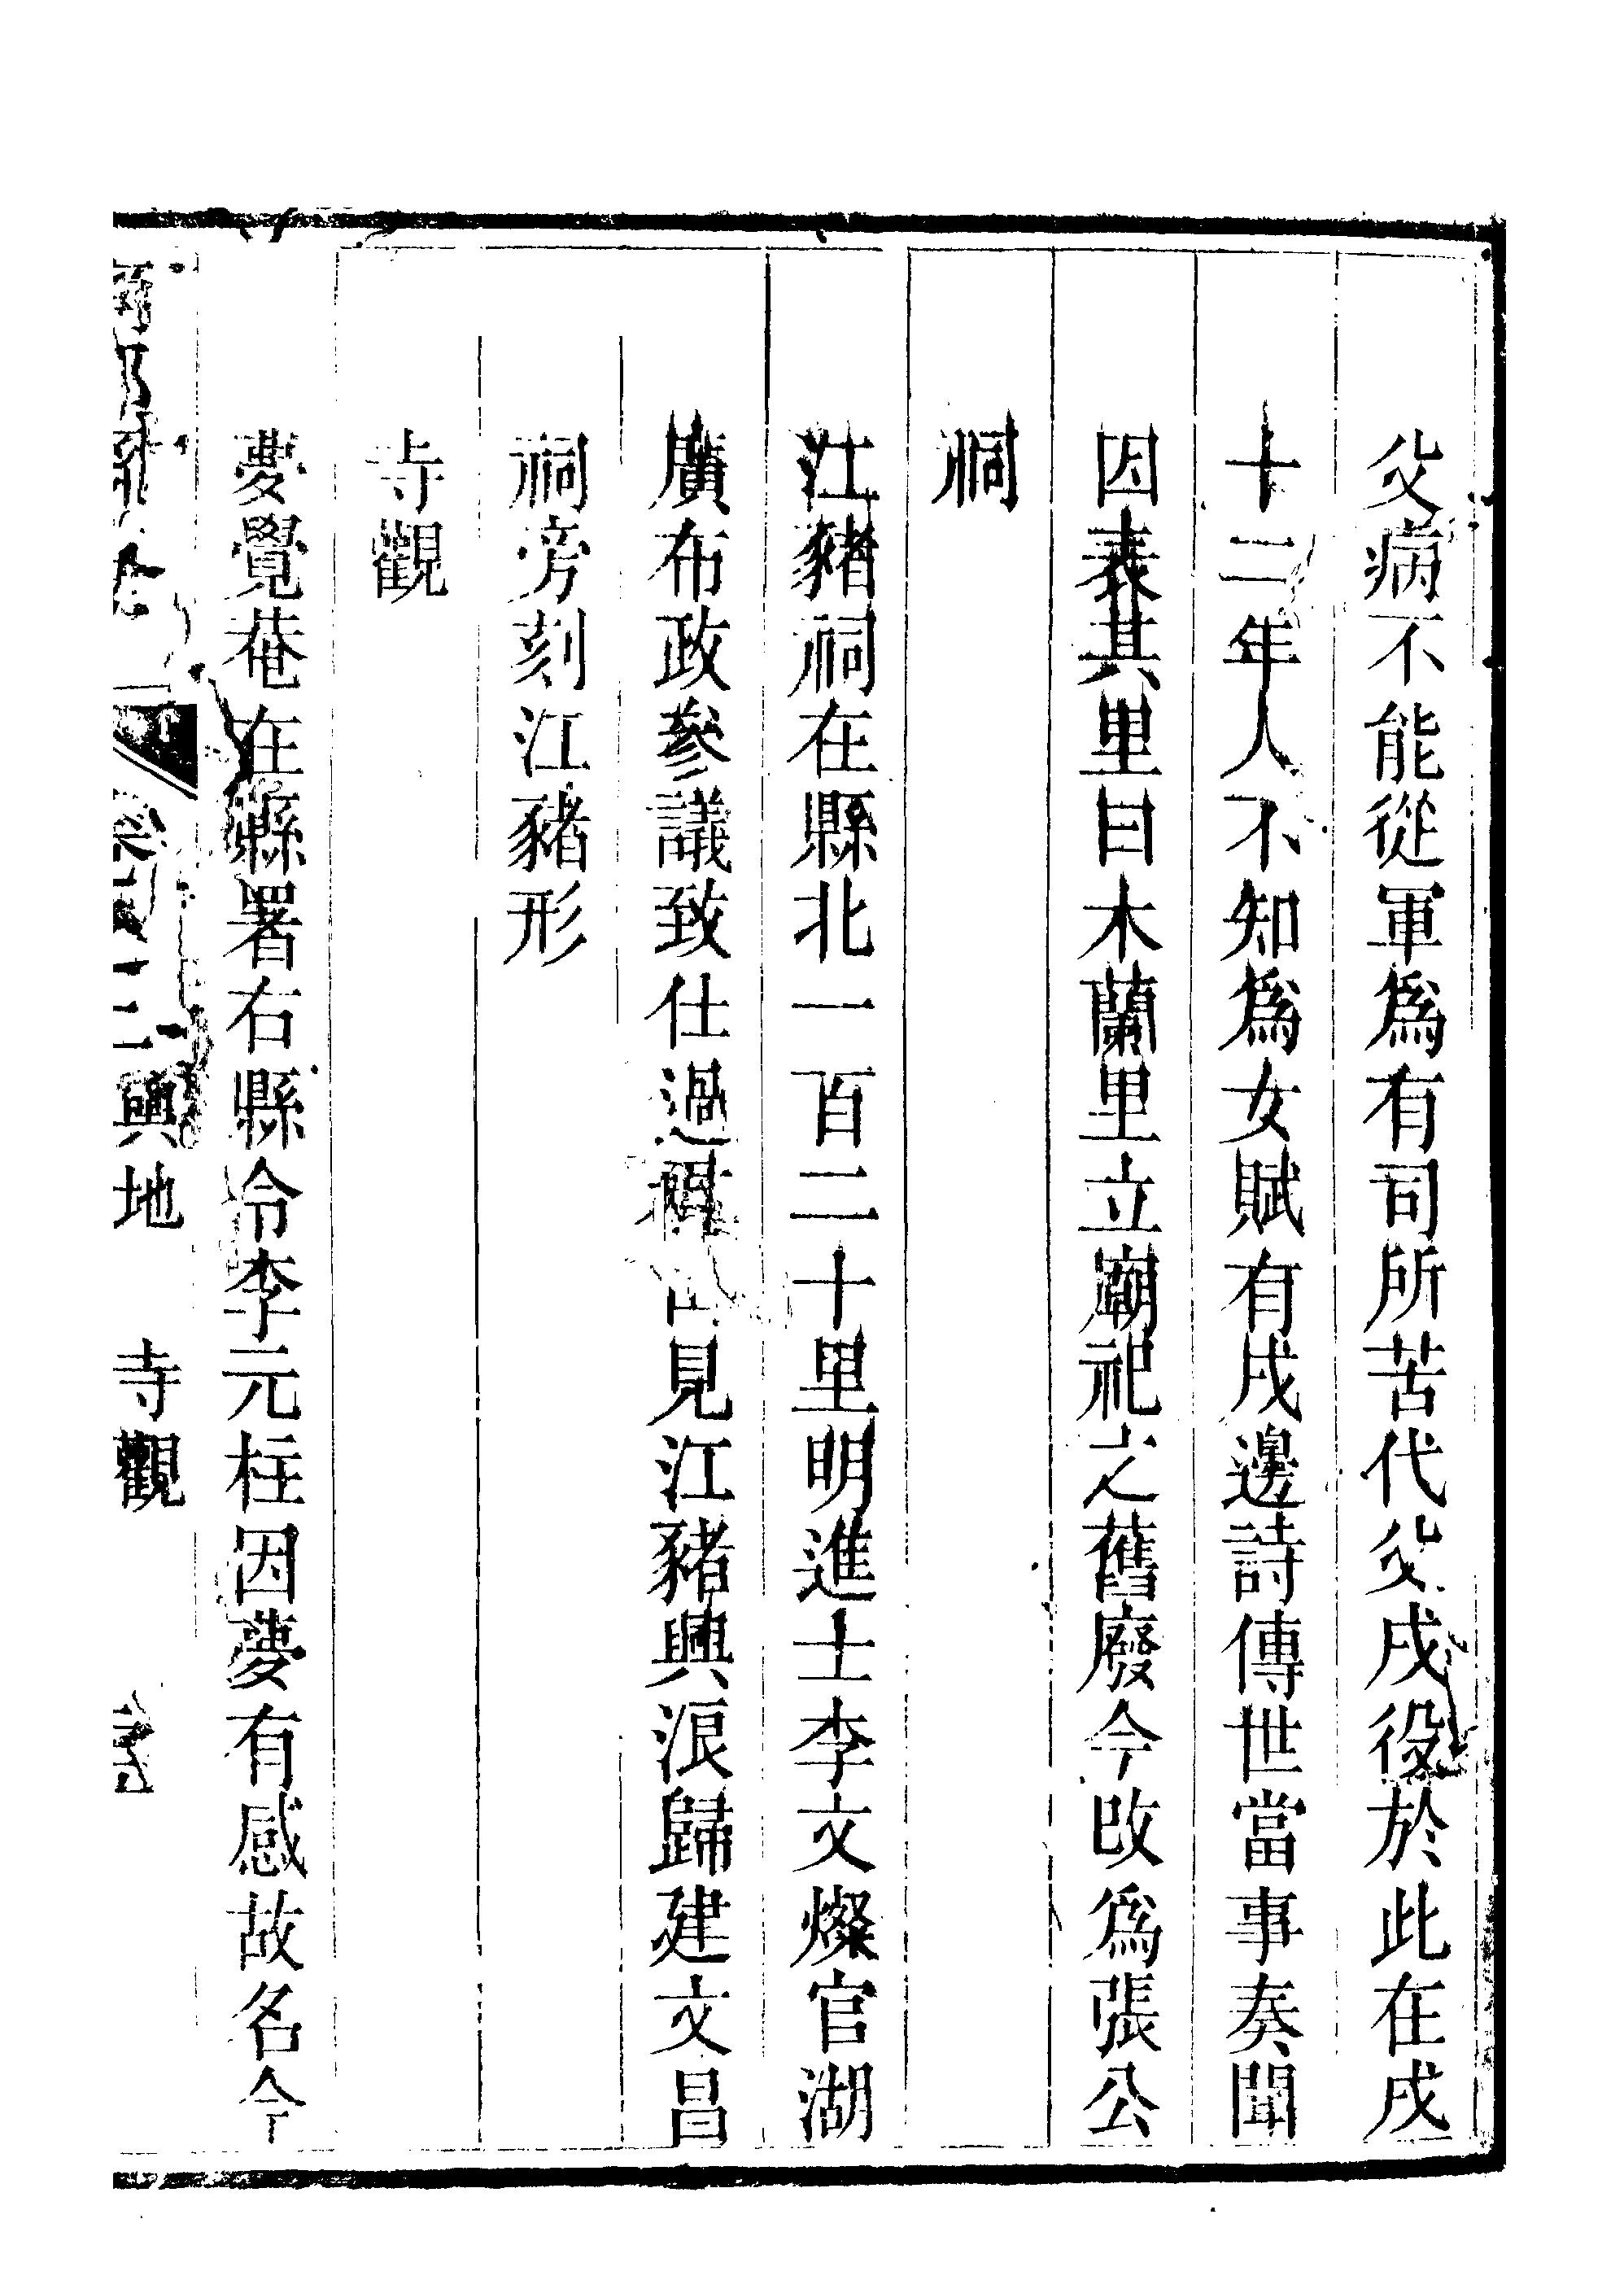 父病不能從軍爲有司所苦代父戍役於此在戍
十二年人不知爲女賦有戍邊詩傳世當事奏聞
因表其里曰木蘭里立廟祀之舊廢今改爲張公
祠
江豬祠在縣北一百二十里明進士李文燦官湖
廣布政參議致仕過見江豬興浪歸建文昌
祠旁刻江豬形
寺觀
夢覺菴在縣署右縣令李元柱因夢有感故名今
輿地 寺觀